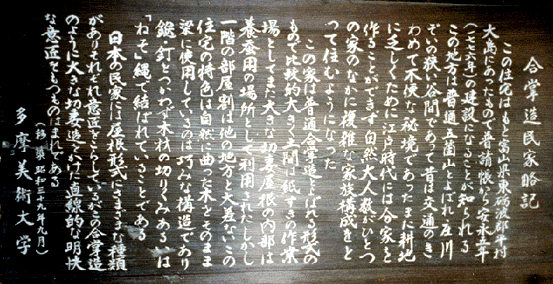 合掌造民家略記
この住宅はもと富山県東砺波郡平村
大島にあったもので普請帳から安永五年
(一七七六年)の建設になることが知られる
この地方は普通五箇山とよばれ庄川
ぞいの狭い谷間であって昔は交通のき
わめて不便な秘境であったまた耕地
に乏しくために江戸時代には分家を
作ることができず自然大人数がひとつ
の家のなかに複雑な家族構成をと
って住むようになった
この家は普通合掌造とよばれる形式の
もので比較的大きく土間は紙すきの作業
場としてまた大きな切妻屋根の内部は
養蚕用の場所として利用されたしかし
一階の部屋割は他の地方と大差ないこの
住宅の特色は自然に曲った木をそのまま
梁に使用しているのは巧みな構造であり
鎹や釘をつかわず木材の切りくみあるいは
「ねそ」縄で結ばれていることである
日本の民家には屋根形式にさまざまな種類
がありそれぞれ意匠をこらしているがこの合掌造
のように大きな切妻造をかけた直線的な明快
な意匠をもつものはまれである
(移築昭和三十九年九月)
多摩美術大学